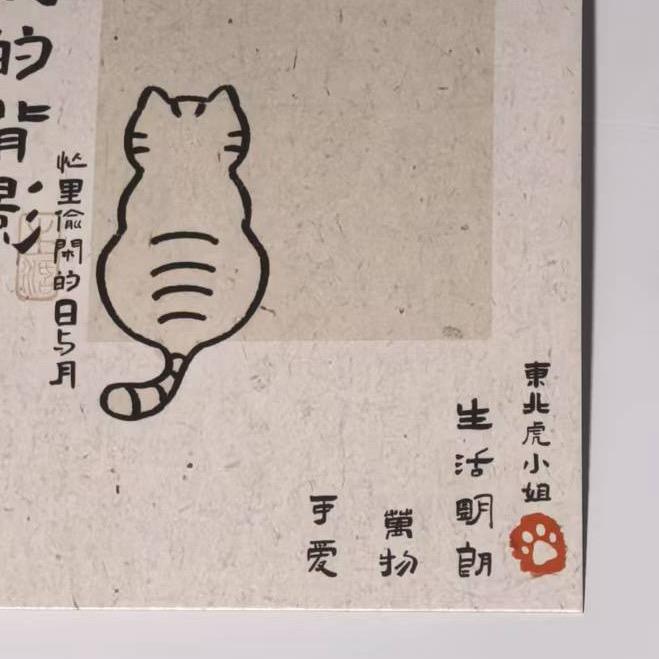 東北虎小姐
生活明朗
萬物
可爱
忙里偷閑的日与月
的背影